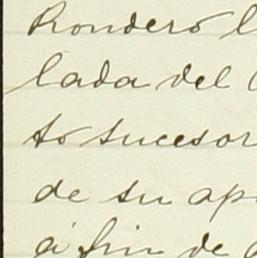 Rondero l
lada del
to sucesor
de su ap
á fin de